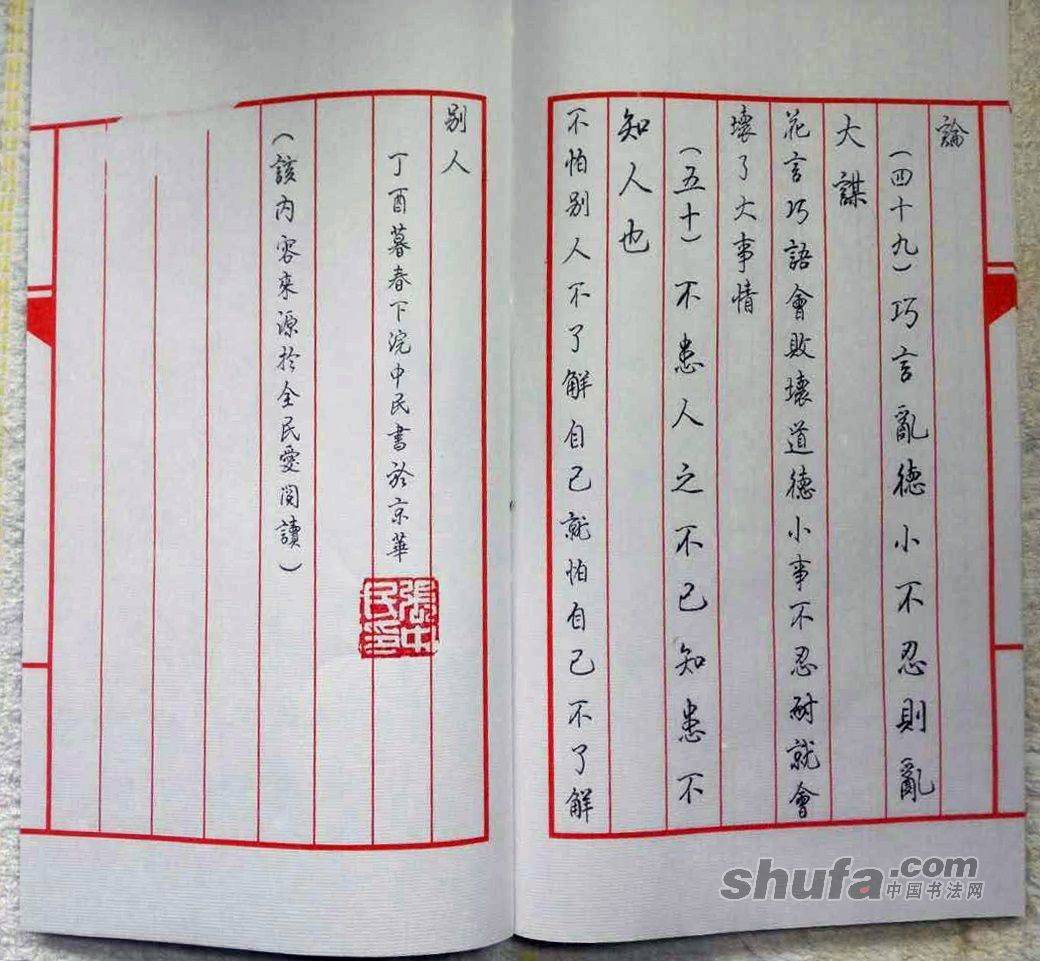 論
（四十九）巧言亂德小不忍則亂
大謀
花言巧語會敗壞道德小事不忍耐就會
壞了大事情
（五十）不患人之不己知患不
知人也
不怕别人不了解自己就怕自己不了解
别人
丁酉暮春下浣中民書於京華
張中民印
（該内容來源於全民愛閱讀）
shufa.com
中国书法网